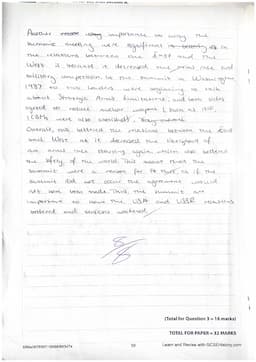 Another reason why importance on why the
summit meeting were significant is in
the relations between the East and the
West is because it decreased the arms race and
military competition. In the summit in Washington
1987 the two leaders were beginning to talk
about Strategic Arms Limitations, and both sides
agreed to reduce nuclear weapons
ICBMs were also
Overall, this bettered the relations between the East
and West as it decreased the
arms race starting again which also bettered
the safety of the world. This about that the
summits were a reason for as if the
summit did not occur the agreement would
not have been made. Thus the summit are
important to how the USA and USSR relations
bettered and tensions
8/8
(Total for Question 3 = 16 marks)
TOTAL FOR PAPER = 32 MARKS
Learn and Revise with GCSEHistory.com